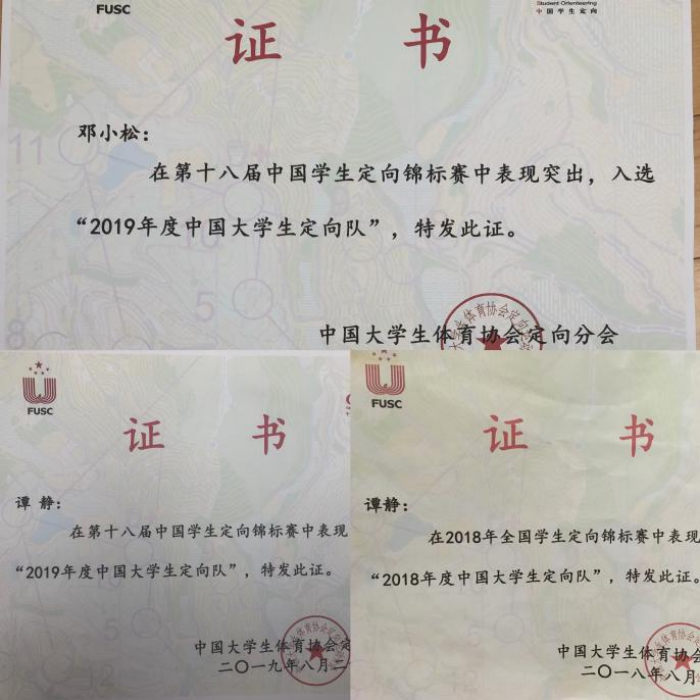 FUSC
Student Orienteering
中国学生定向
证 书
邓小松：
在第十八届中国学生定向锦标赛中表现突出，入选
“2019年度中国大学生定向队”，特发此证。
中国大学生体育协会定向分会
FUSC
证 书
谭 静：
在第十八届中国学生定向锦标赛中表现
“2019年度中国大学生定向队”，特发此证。
中国大学生体育协会定
二〇一九年八月二
FUSC
证 书
谭静：
在2018年全国学生定向锦标赛中表现
“2018年度中国大学生定向队”，特发此证。
中国大学生体育协会
二〇一八年八月